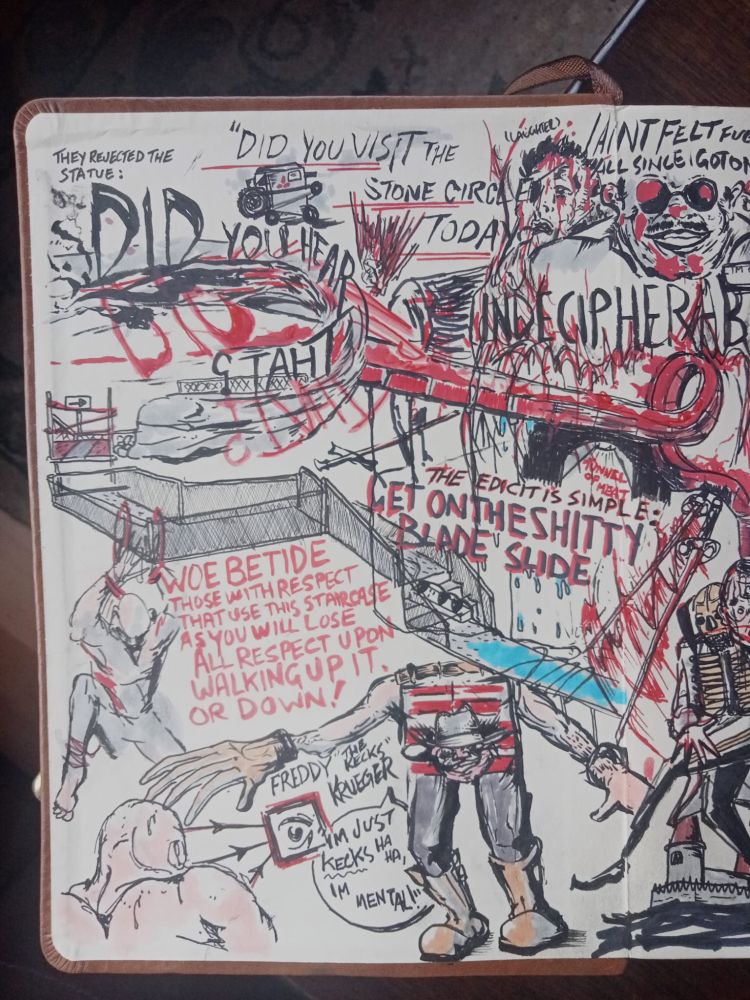 THEY REJECTED THE
STATUE:
"DID YOU VISIT THE
STONE CIRCLE
TODAY
(LAUGHTER)
I AINT FELT FU
ALL SINCE I GOT ON
DID
YOU HEAR
DID
THAT
INDECIPHERAB
TUNNEL
OF MEAT
THE EDICIT IS SIMPLE:
GET ON THE SHITTY
BLADE SLIDE
WOE BETIDE
THOSE WITH RESPECT
THAT USE THIS STAIRCASE
AS YOU WILL LOSE
ALL RESPECT UPON
WALKING UP IT.
OR DOWN!
FREDDY "THE
KECKS"
KRUEGER
I'M JUST
KECKS HA
HA,
IM MENTAL!"